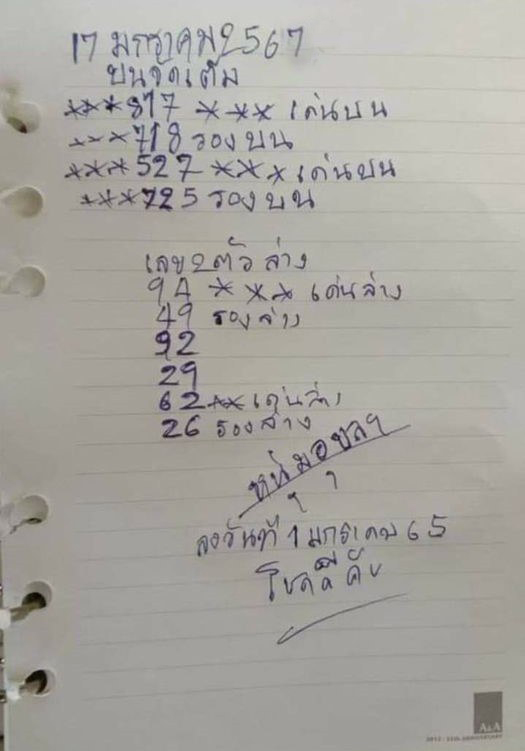 17 มกราคม 2567
บนจัดเต็ม
***817 *** เด่นบน
***718 รองบน
***527 *** เด่นบน
***725 รองบน
เลข 2 ตัว ล่าง
94 *** เด่นล่าง
49 รองล่าง
92
29
62 ** เด่นล่าง
26 รองล่าง
ลงวันที่ 1 มกราคม 65
โชคดีคับ
A&A
2012 · 25th ANNIVERSARY